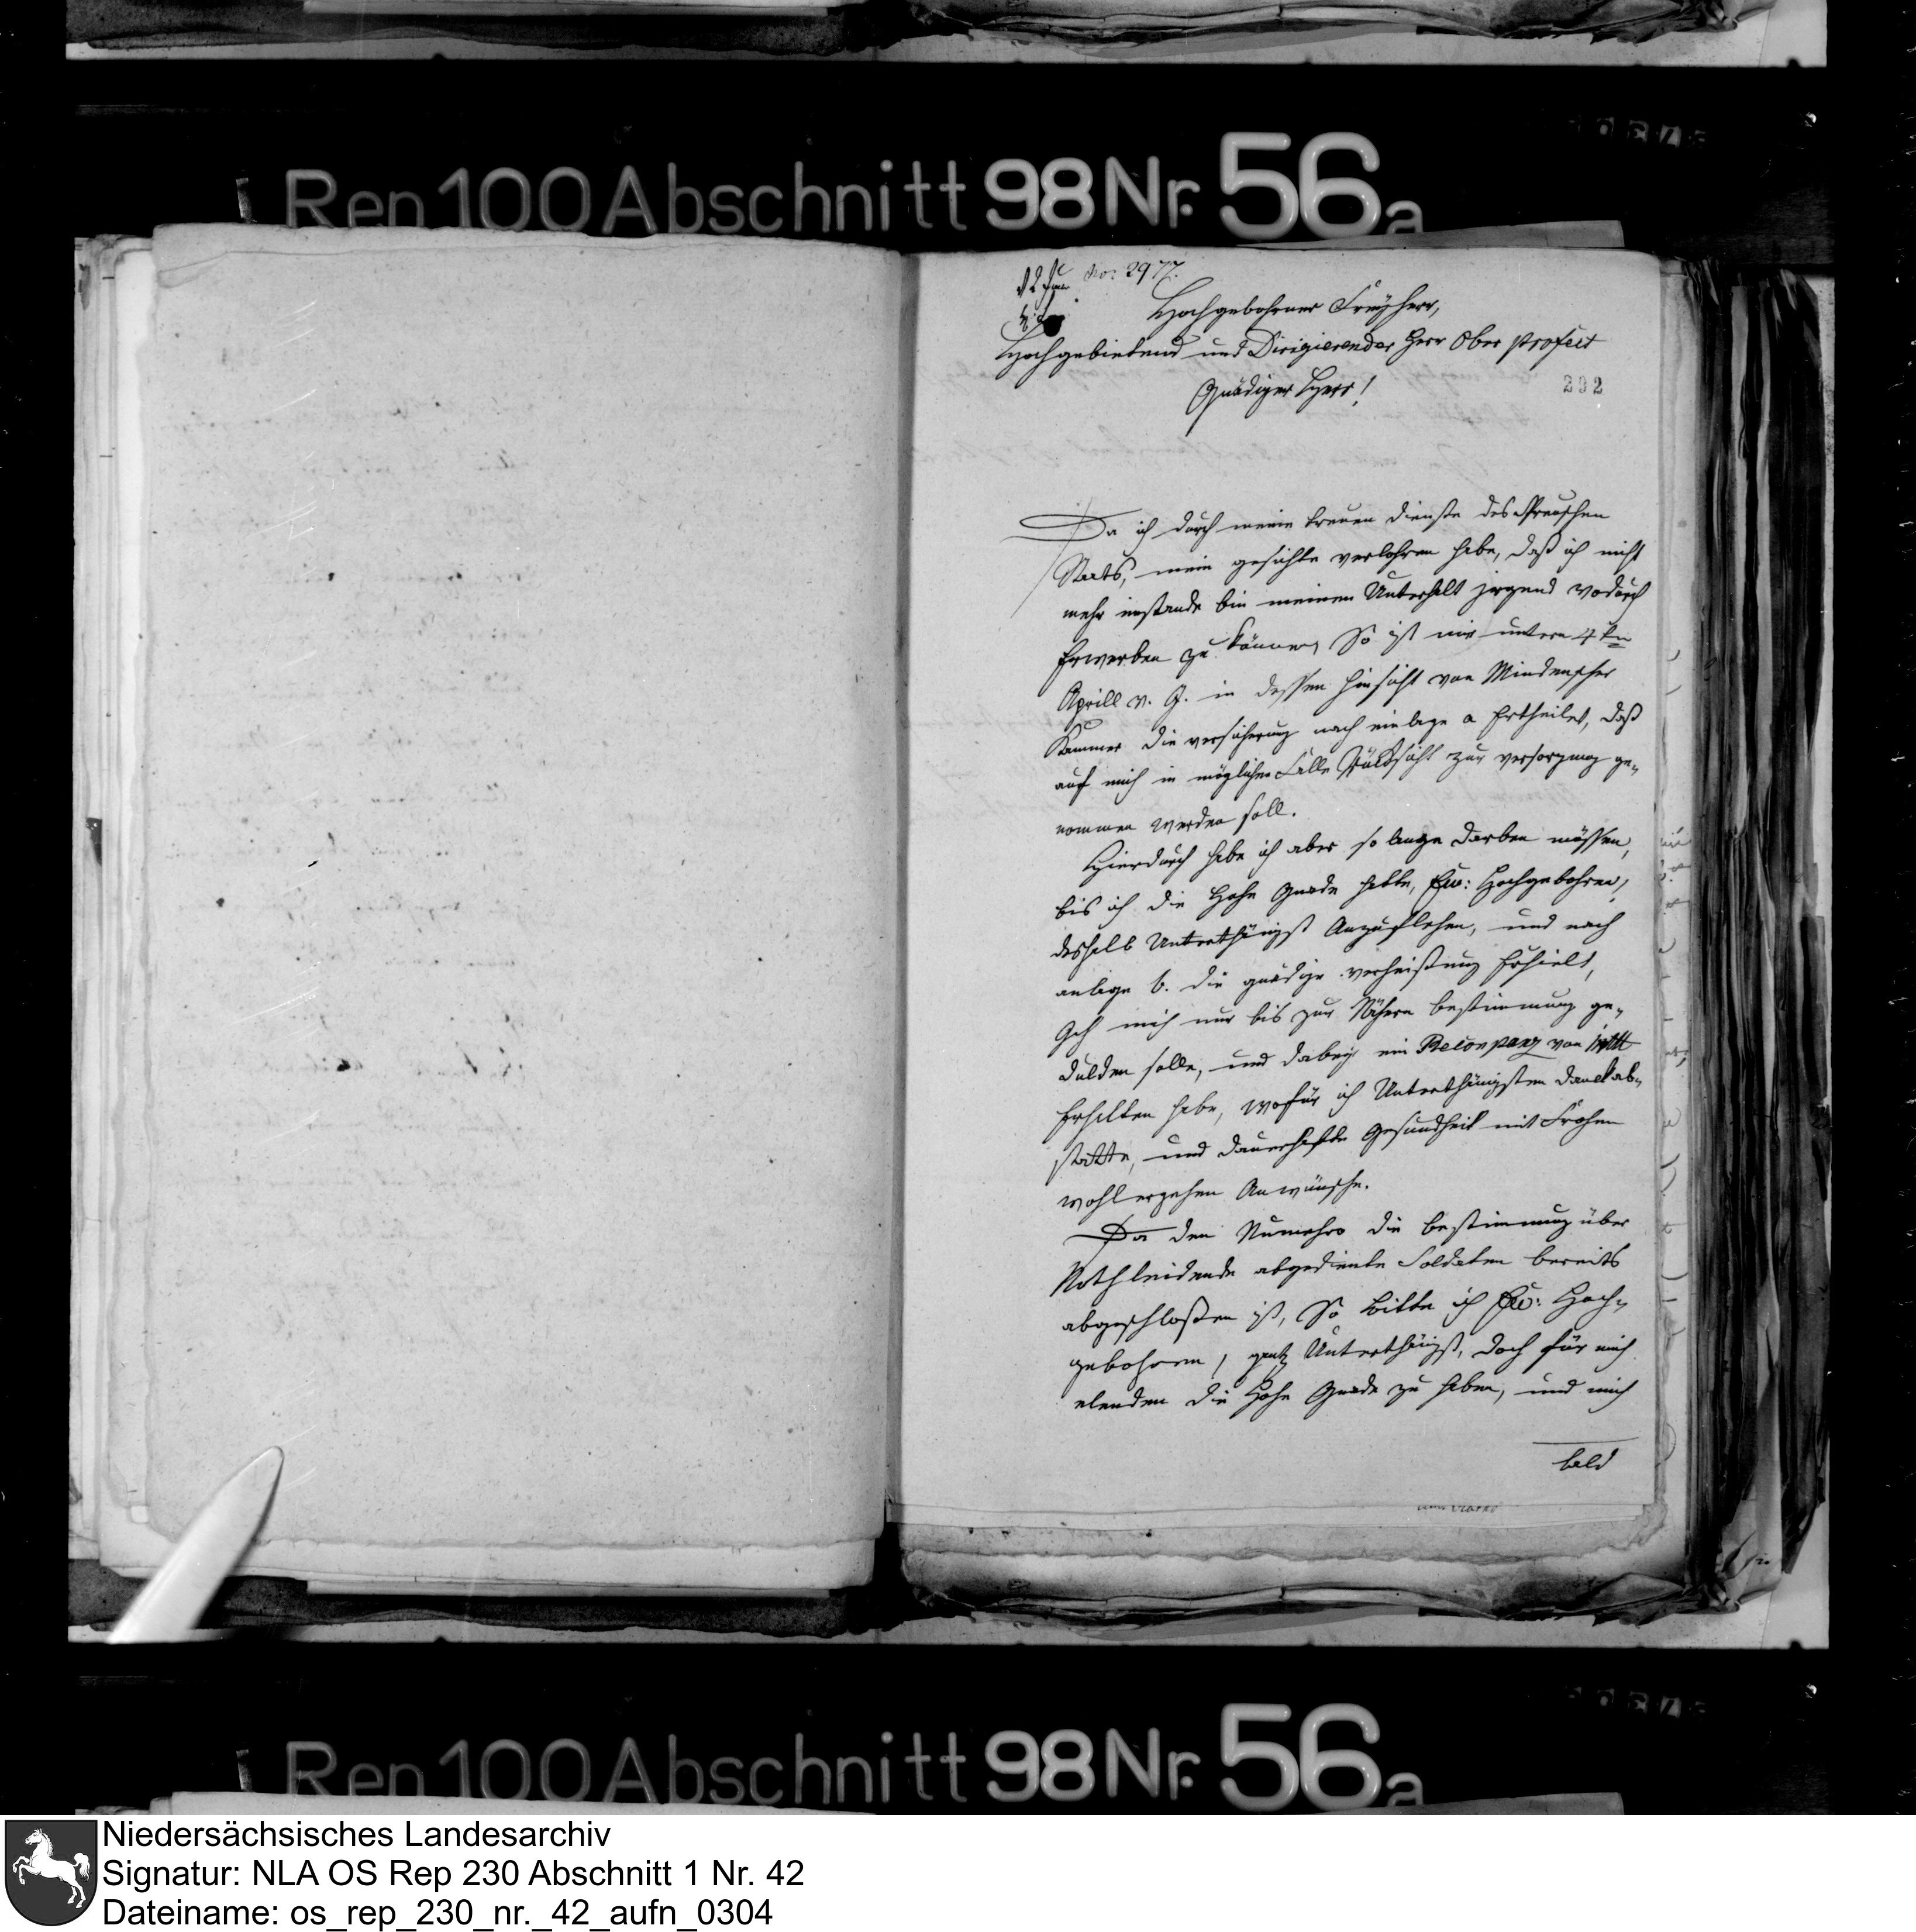 Rep 100 Abschnitt 98 Nr. 56a
No: 2977.
Hochgebohrner Freyherr,
Hochgebietend und Dirigierender Herr Ober Profect
Gnädiger Herr!
292
Da ich durch meine treuen dienste des Preuschen
Staats, mein gesichte verlohren habe, daß ich nicht
mehr imstande bin meinen Unterhalt jrgend wodurch
Erwerben zu können, So ist mir untern 4 tn
Aprill v. J. in dessen hinsicht von Mindenscher
Kammer die versicherung nach einlage a Ertheilet, daß
auf mich in möglichen Fälle Rücksicht zur versorgung ge-
nommen werden soll.
Hierdurch habe ich aber so lange darben müssen,
bis ich die Hohe Gnade hatte, Ew: Hochgebohren,
deshalb Unterthänigst Anzuflehen, und nach
anlage b. die gnädige verheißung Erhielt,
Jch mich nur bis zur Nähern bestimmung ge-
dulden solle, und dabey ein Recompanz von
Erhalten habe, wofür ich Unterthänigsten danck ab-
statte, und dauerhafte Gesundheit mit Frohen
wohlergehen Anwünsche.
Da den Numehro die bestimmung über
Nothleidende abgediente Soldaten bereits
abgeschloßen ist, So bitte ich Ew: Hoch-
gebohren, gantz Unterthänigst, doch für mich
elenden die Hohe Gnade zu haben, und mich
bald
Rep 100 Abschnitt 98 Nr. 56a
Niedersächsisches Landesarchiv
Signatur: NLA OS Rep 230 Abschnitt 1 Nr. 42
Dateiname: os_rep_230_nr._42_aufn_0304